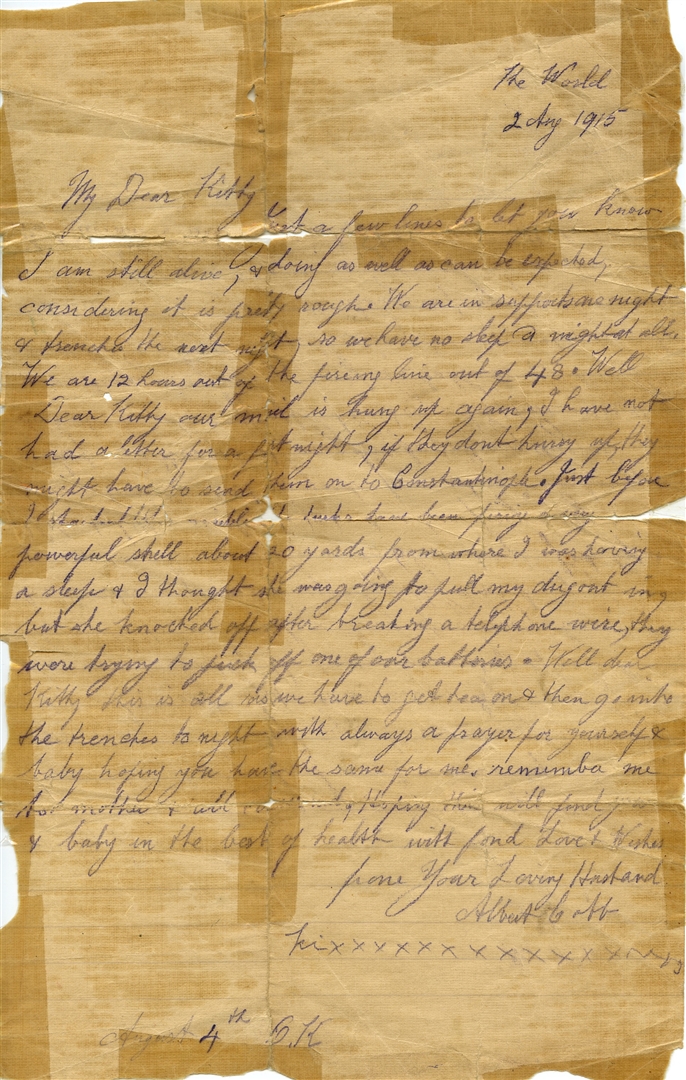 The World
2 Aug 1915
My Dear Kitty
Just a few lines to let you know
I am still alive, & doing as well as can be expected,
considering it is pretty rough. We are in supports one night
& trenches the next night, so we have no sleep a night at all.
We are 12 hours out of the fireing line out of 48. Well
Dear Kitty our mail is hung up again, I have not
had a letter for a fortnight, if they dont hurry up they
might have to send them on to Constantinople. Just before
I started this have been fireing
powerful shell about 20 yards from where I was having
a sleep & I thought she was going to pull my dugout in
but she knocked off after breaking a telephone wire, they
were trying to pick off one of our batteries. Well dear
Kitty this is all as we have to get tea on & then go into
the trenches to night with always a prayer for yourself &
baby hoping you have the same for me. remember me
to mother & all Hoping this will find you
& baby in the best of health with fond Love & Wishes
from Your Loving Husband
Albert Cobb
xxxxxxxxxxxxx
August 4th O.K